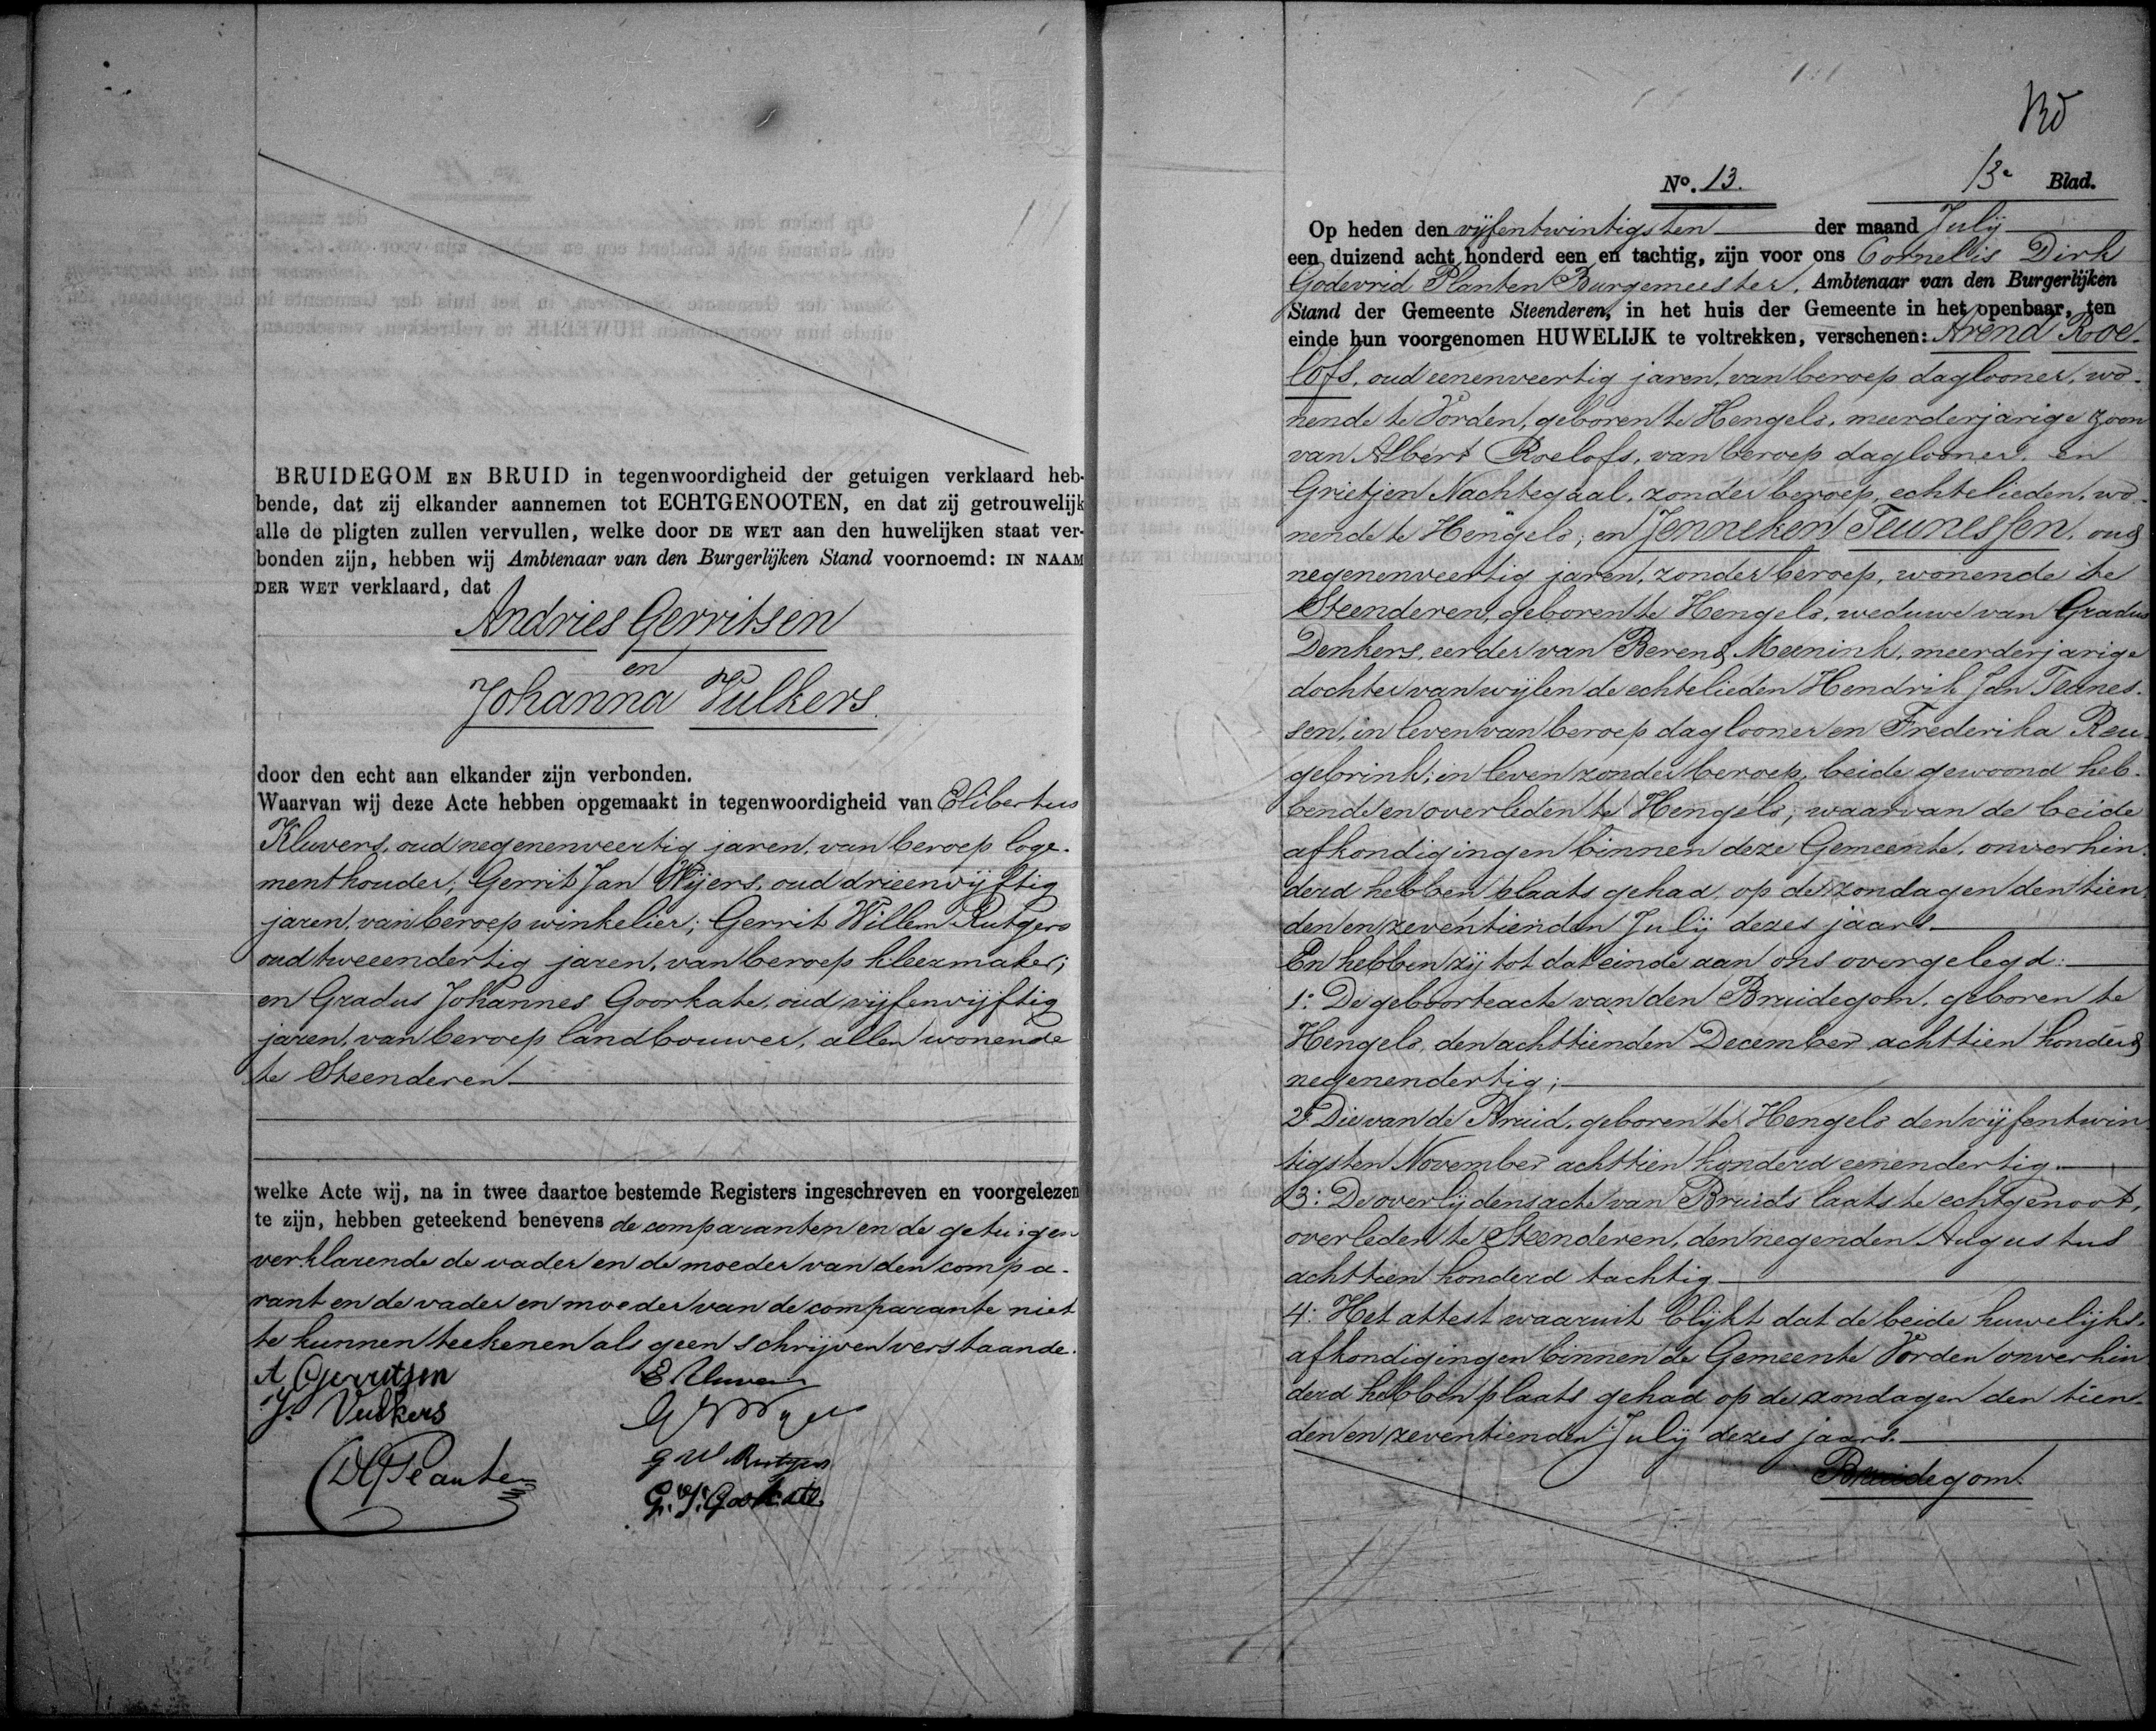 BRUIDEGOM EN BRUID in tegenwoordigheid der getuigen verklaard heb-
bende, dat zij elkander aannemen tot ECHTGENOOTEN, en dat zij getrouwelijk
alle de pligten zullen vervullen, welke door DE WET aan den huwelijken staat ver-
bonden zijn, hebben wij Ambtenaar van den Burgerlijken Stand voornoemd: IN NAAM
DER WET verklaard, dat
Andries Gerritsen
en
Johanna Vulkers
door den echt aan elkander zijn verbonden.
Waarvan wij deze Acte hebben opgemaakt in tegenwoordigheid van Elibertus
Kluvers, oud negenenveertig jaren, van beroep loge-
menthouder; Gerrit Jan Wijers, oud drieenvijftig
jaren, van beroep winkelier; Gerrit Willem Rutgers
oud tweeendertig jaren, van beroep kleermaker;
en Gradus Johannes Goorkate, oud vijfenvijftig
jaren, van beroep landbouwer, allen wonende
te Steenderen
welke Acte wij, na in twee daartoe bestemde Registers ingeschreven en voorgelezen
te zijn, hebben geteekend benevens de comparanten en de getuigen
verklarende de vader en de moeder van den compa-
rant en de vader en moeder van de comparante niet
te kunnen teekenen als geen schrijven verstaande.
A Gerritsen
E Kluvers
J. Vulkers
G J Wyers
G W Rutgers
CDG Planten
G. J. Goorkate
No. 13.
13e Blad.
Op heden den vijfentwintigsten der maand Julij
een duizend acht honderd een en tachtig, zijn voor ons Cornelis Dirk
Godevrid Planten Burgemeester, Ambtenaar van den Burgerlijken
Stand der Gemeente Steenderen, in het huis der Gemeente in het openbaar, ten
einde hun voorgenomen HUWELIJK te voltrekken, verschenen: Arend Roe-
lofs, oud eenenveertig jaren, van beroep daglooner, wo-
nende te Vorden, geboren te Hengelo, meerderjarige zoon
van Albert Roelofs, van beroep daglooner, en
Grietjen Nachtegaal, zonder beroep, echtelieden, wo-
nende te Hengelo; en Jenneken Teunessen, oud
negenenveertig jaren, zonder beroep, wonende te
Steenderen, geboren te Hengelo, weduwe van Gradus
Denkers, eerder van Berend Meenink, meerderjarige
dochter van wijlen de echtelieden Hendrik Jan Teunes-
sen, in leven van beroep daglooner en Frederika Reu-
gebrink; in leven zonder beroep, beide gewoond heb-
bende en overleden te Hengelo; waarvan de beide
afkondigingen binnen deze Gemeente, onverhin-
derd hebben plaats gehad, op de zondagen den tien-
den en zeventienden Julij dezes jaars.
En hebben zij tot dat einde aan ons overgelegd:
1: De geboorteacte van den Bruidegom, geboren te
Hengelo, den achttienden December achttien honderd
negenendertig;
2: Die van de Bruid, geboren te Hengelo den vijfentwin-
tigsten November achttien honderd eenendertig.
3: De overlijdensacte van Bruids laatste echtgenoot,
overleden te Steenderen, den negenden Augustus
achttien honderd tachtig
4: Het attest waaruit blijkt dat de beide huwelijks-
afkondigingen binnen de Gemeente Vorden onverhin-
derd hebben plaats gehad op de zondagen den tien-
den en zeventienden Julij dezes jaars.
Bruidegom.